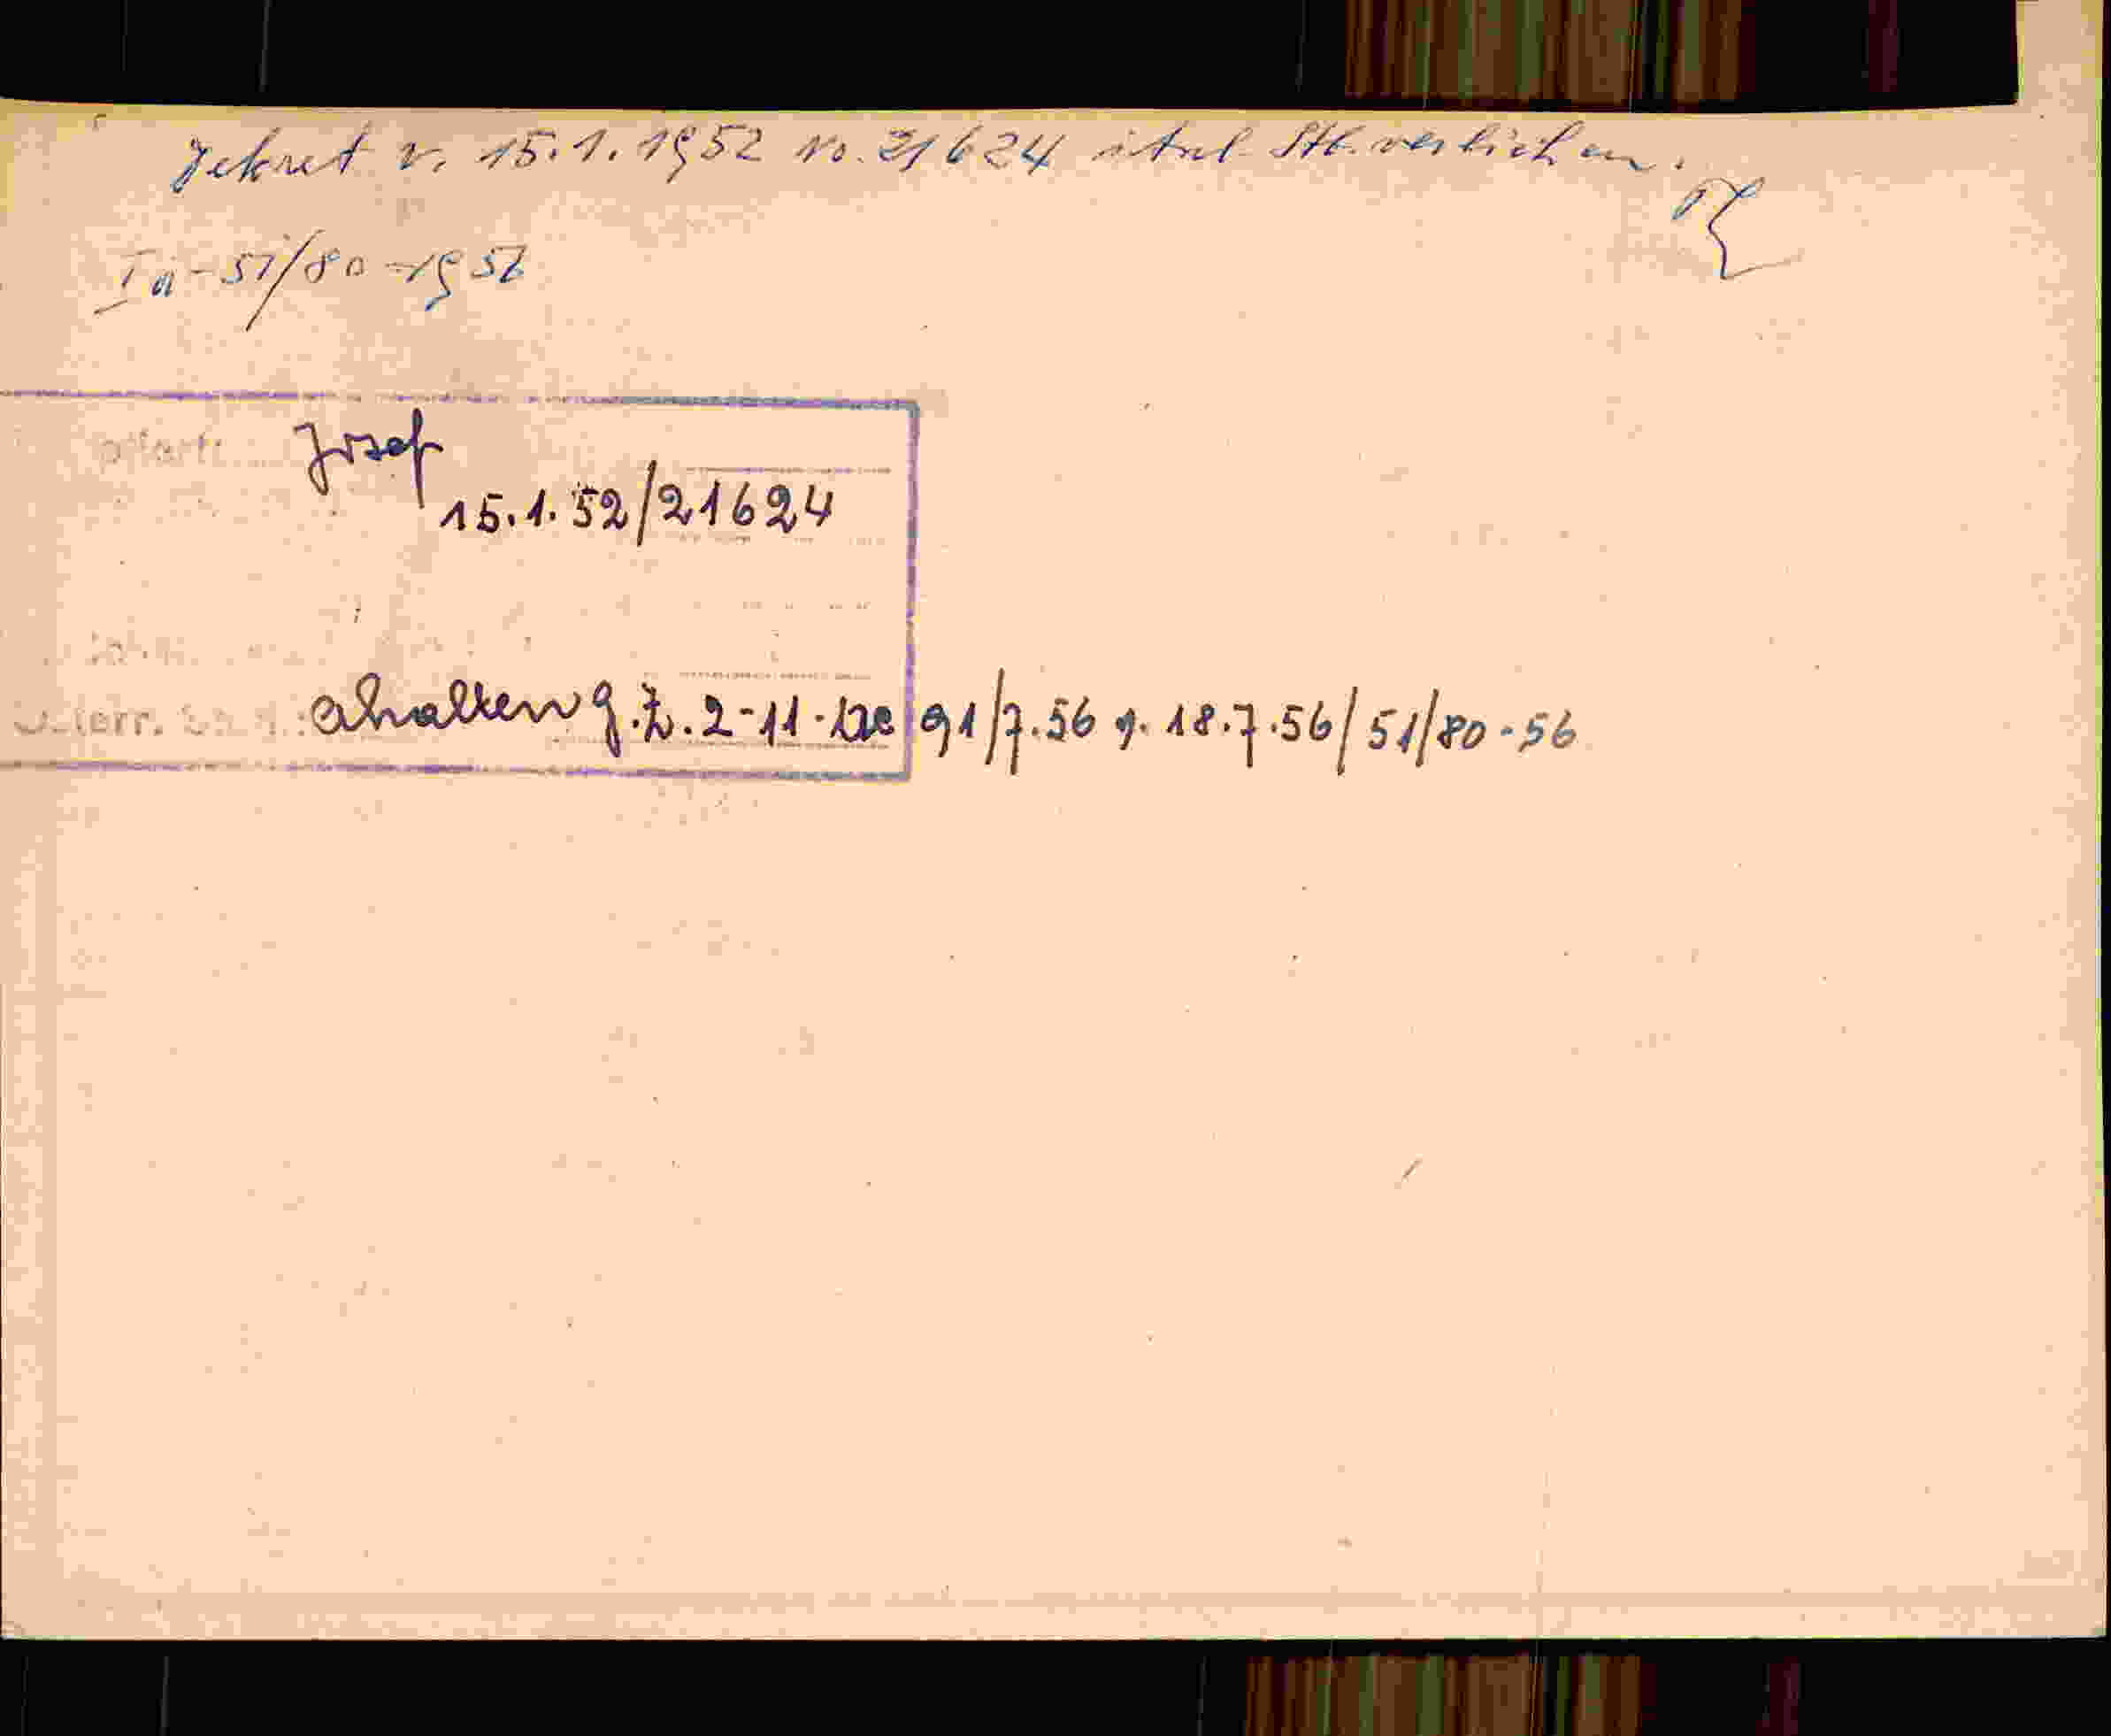 Dekret v. 15.1.1952 No. 21624 ital. Stb. verliehen.
Ia-51/80-1956
optiert: Josef
15.1.52/21624
Österr. erhalten g.Z. 2-11- 91/7.56 v. 18.7.56/51/80-56